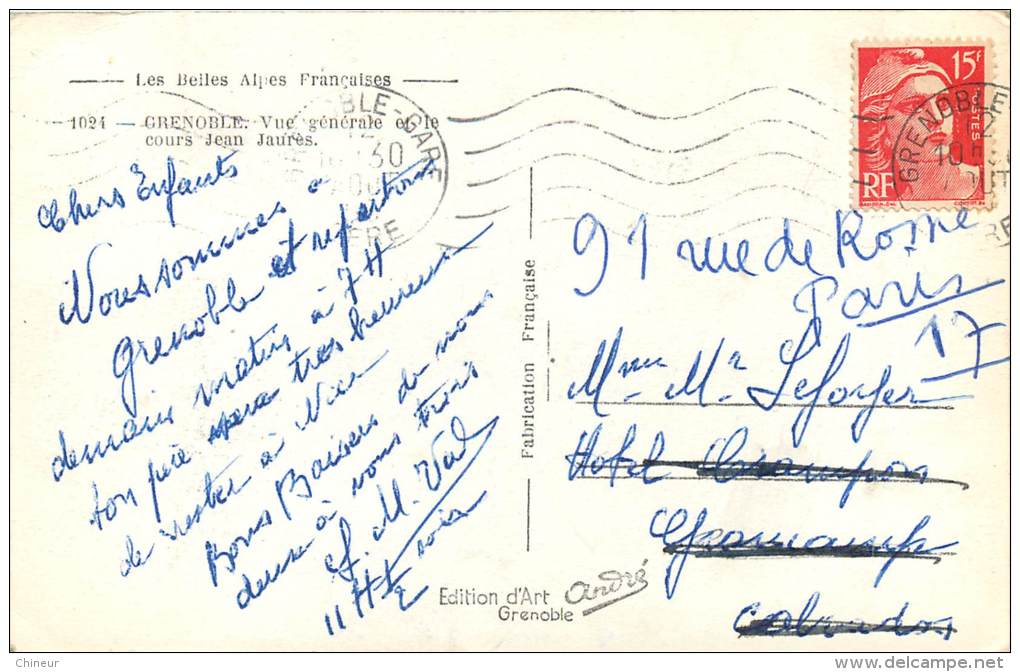 Les Belles Alpes Françaises
1024 — GRENOBLE. Vue générale et le
cours Jean Jaurès.
Chers Enfants
Nous sommes a
Grenoble et repartons
demain matin à 7H
ton père sera très heureux
de rester à Nice
Bons Baisers de nous
deux à vous trois
11H½ soir
Fabrication Française
Edition d'Art André
Grenoble
15F
POSTES
RF
GRENOBLE-GARE
GRENOBLE
91 rue de Rome
Paris
17
Mme Mr Leforger
Hotel
Calvados
Chineur
www.delcampe.net